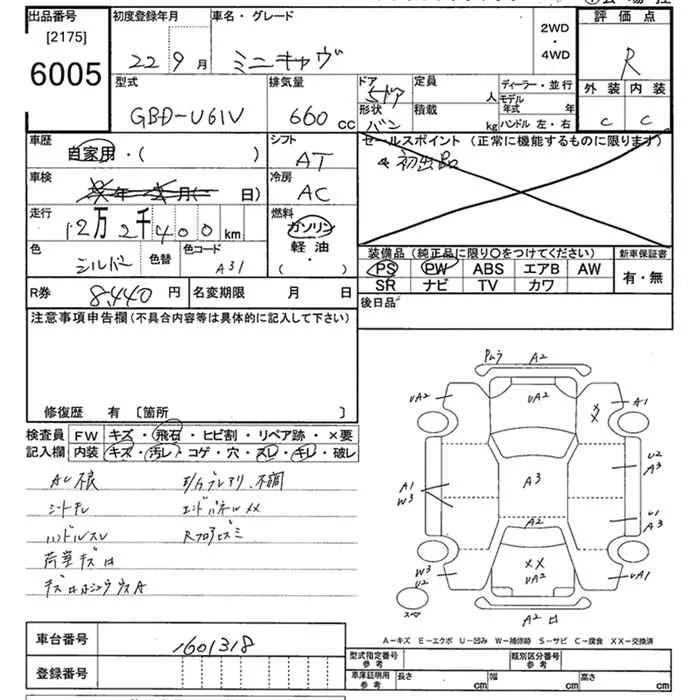 出品番号 初度登録年月 車名・グレード 評価点
[2175] 22 9月 ミニキャヴ 2WD・4WD R
6005
型式 排気量 ドア 5ドア 定員 人 ディーラー・並行 外装 内装
GBD-U61V 660cc 形状 バン 積載 kg モデル年式 年 C C
ハンドル 左・右
車歴 シフト セールスポイント (正常に機能するものに限ります)
自家用・( ) AT 初出品
車検 年 月( 日) 冷房 AC
走行 12万2千400km 燃料 ガソリン
軽油・( )
色 シルバー 色替 色コード A31
装備品(純正品に限り○をつけてください) 新車保証書
PS PW ABS エアB AW 有・無
SR ナビ TV カワ
R券 8,440円 名変期限 月 日 後日品
注意事項申告欄(不具合内容等は具体的に記入して下さい)
修復歴 有 [箇所 ]
検査員 FW キズ・飛石・ヒビ割・リペア跡・×要
記入欄 内装 キズ・汚レ・コゲ・穴・スレ・キレ・破レ
シートキレ エンドパネルXX
ハンドルスレ
荷室キズ
A2
UA2 UA2 A1
XX
U2
A3 A3
A1
W3
U1
A3
A2
W3 XX UA1
U2 UA2
スペア A2
A－キズ E－エクボ U－凹み W－補修跡 S－サビ C－腐食 XX－交換済
車台番号 1601318
登録番号
型式指定番号 参考 類別区分番号 参考
車庫証明用 参考 長さ cm 幅 cm 高さ cm